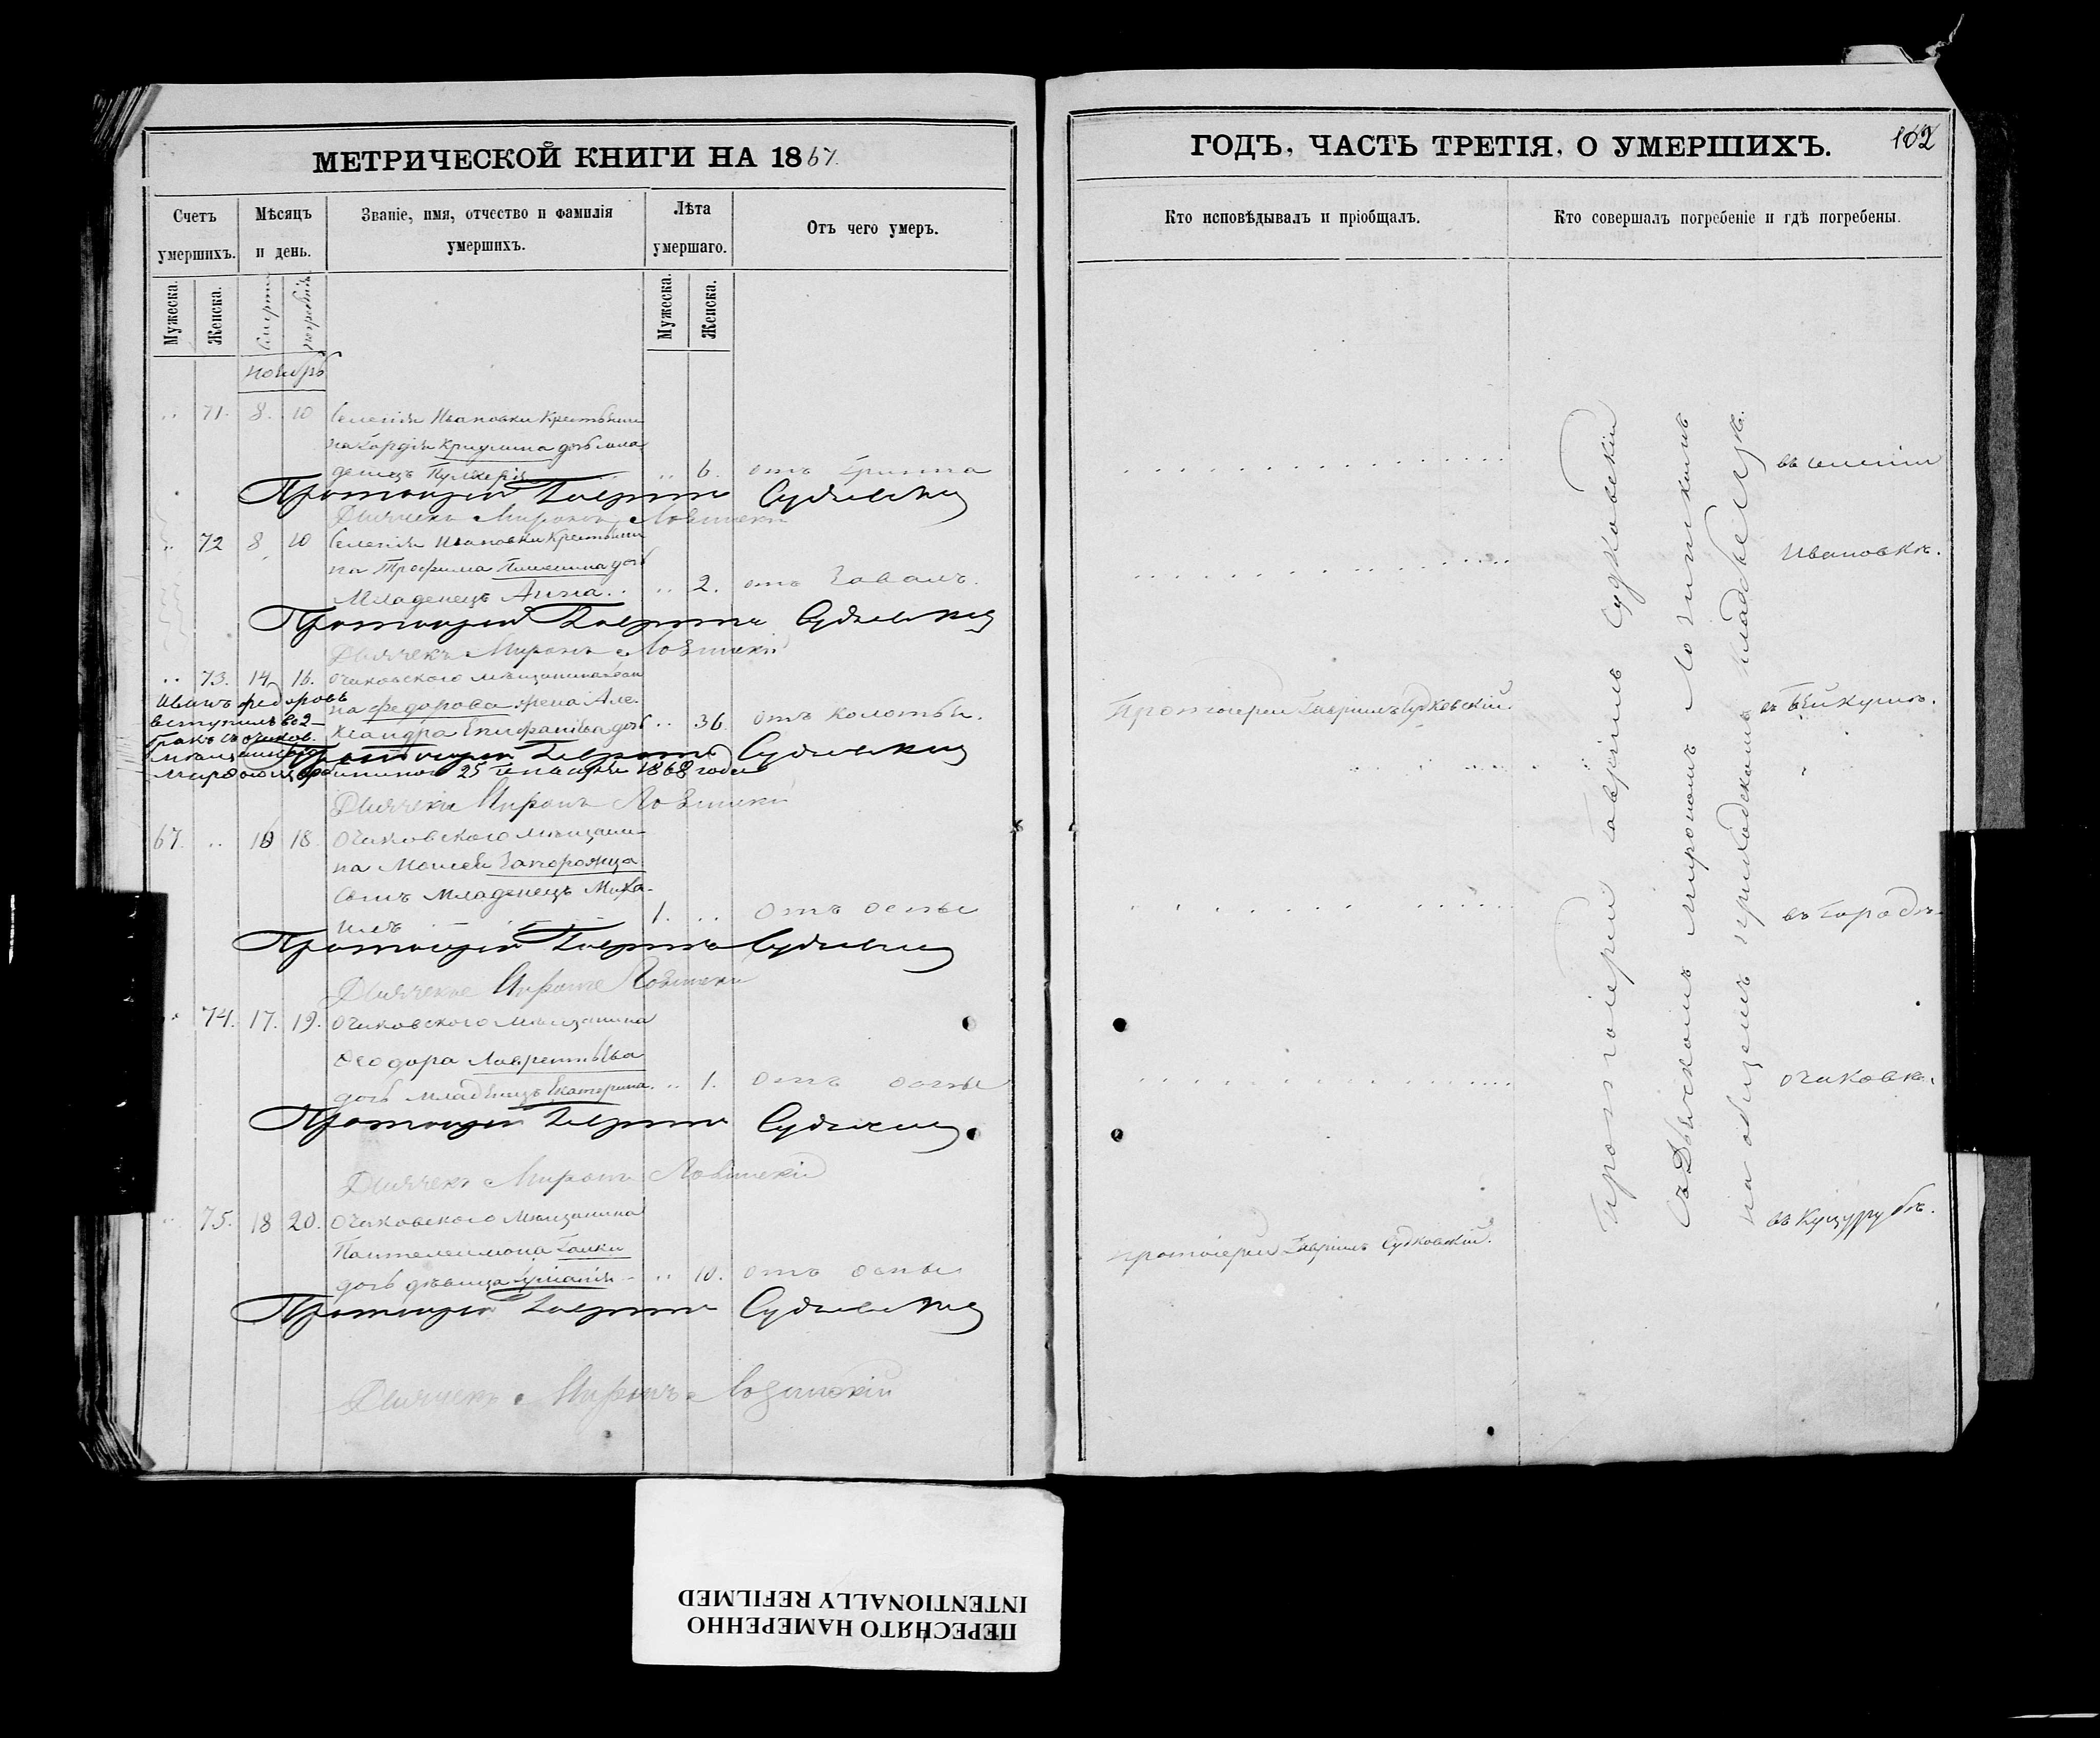 МЕТРИЧЕСКОЙ КНИГИ НА 1867.
Счетъ умершихъ.
Мѣсяцъ и день.
Званіе, имя, отчество и фамилія умершихъ.
Лѣта умершаго.
Отъ чего умеръ.
Мужеска.
Женска.
Смерти
погребенія
Мужеска.
Женска.
ноябрь
.. 71. 8. 10 Селенія Ивановки Крестьяни
на Гордія дочь мла
денецъ Пульхерія .. 6. отъ
Протоіерей Гавріилъ Судковскій
Дьячекъ Миронъ Лозинскій
.. 72 8 10 Селенія Ивановки Крестьяни
на Трофима дочь
Младенецъ Анна .. .. 2. отъ
Протоіерей Гавріилъ Судковскій
Дьячекъ Миронъ Лозинскій
.. 73. 14. 16. Очаковского мѣщанина Іоан
на Федорова жена Але
ксандра Епифаніева дочь .. 36 отъ колотьи.
Иванъ Федоровъ
вступилъ во 2-
бракъ съ очаков.
Протоіерей Гавріилъ Судковскій
25 1868 года
Дьячекъ Миронъ Лозинскій
67. .. 16 18. Очаковского мѣщани
на Моисея Запорожца
сынъ Младенецъ Миха
илъ 1. .. Отъ оспы
Протоіерей Гавріилъ Судковскій
Дьячекъ Миронъ Лозинскій
.. 74. 17. 19. Очаковского мѣщанина
Ѳеодора Лаврентьева
дочь младенецъ Екатерина. .. 1. Отъ оспы
Протоіерей Гавріилъ Судковскій
Дьячекъ Миронъ Лозинскій
.. 75. 18 20. Очаковского мѣщанина
Пантелеимона Галки
дочь дѣвица .. 10. отъ оспы
Протоіерей Гавріилъ Судковскій
Дьячекъ Миронъ Лозинскій
ГОДЪ, ЧАСТЬ ТРЕТІЯ, О УМЕРШИХЪ.
102
Кто исповѣдывалъ и пріобщалъ.
Кто совершалъ погребеніе и гдѣ погребены.
Протоіерей Гавріилъ Судковскій.
протоіерей Гавріилъ Судковскій.
Протоіерей Гавріилъ Судковскій
съ Дьячкомъ Мирономъ Лозинскимъ
на общемъ приходскомъ кладбищѣ.
въ селеніи
Ивановкѣ.
въ Бейкушѣ.
въ Городѣ
Очаковѣ.
въ Куцурубѣ.
ПЕРЕСНЯТО НАМЕРЕННО
INTENTIONALLY REFILMED